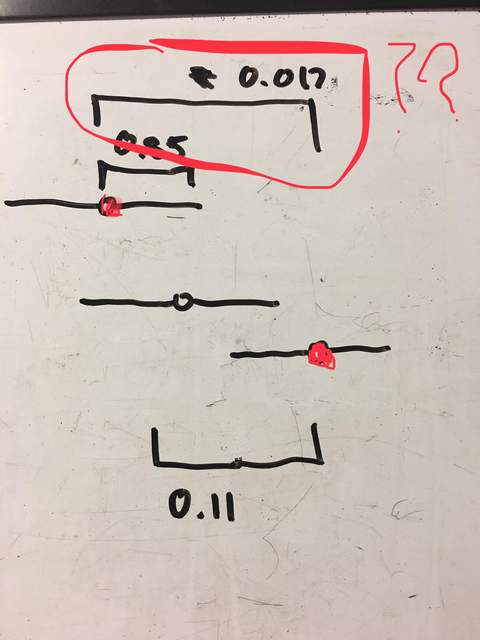 * 0.017
??
0.85
0.11